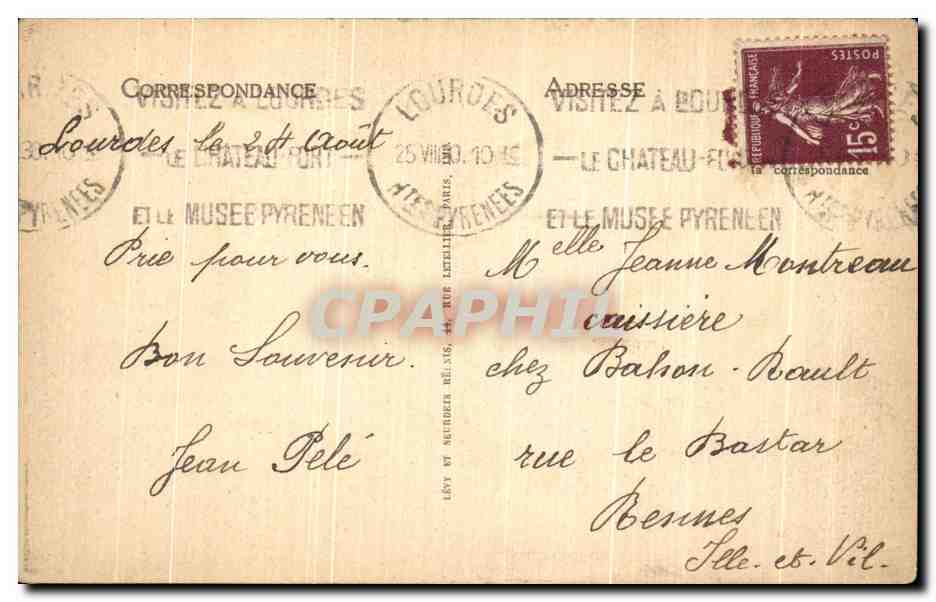 CORRESPONDANCE
ADRESSE
la correspondance
VISITEZ A LOURDES
— LE CHATEAU-FORT —
ET LE MUSEE PYRENEEN
LOURDES
25 VIII 30. 10-15
HTES PYRENEES
VISITEZ A LOURDES
— LE CHATEAU-FORT
ET LE MUSEE PYRENEEN
PYRENEES
REPUBLIQUE FRANÇAISE
POSTES
15c
Lourdes le 24 Août
Prie pour vous.
Bon Souvenir.
Jean Pelé
LÉVY ET NEURDEIN RÉUNIS, 44, RUE LETELLIER, PARIS, IMP
Melle Jeanne Montreau
caissière
chez Bahon-Rault
rue le Bastar
Rennes
Ille-et-Vil.
CPAPHIL